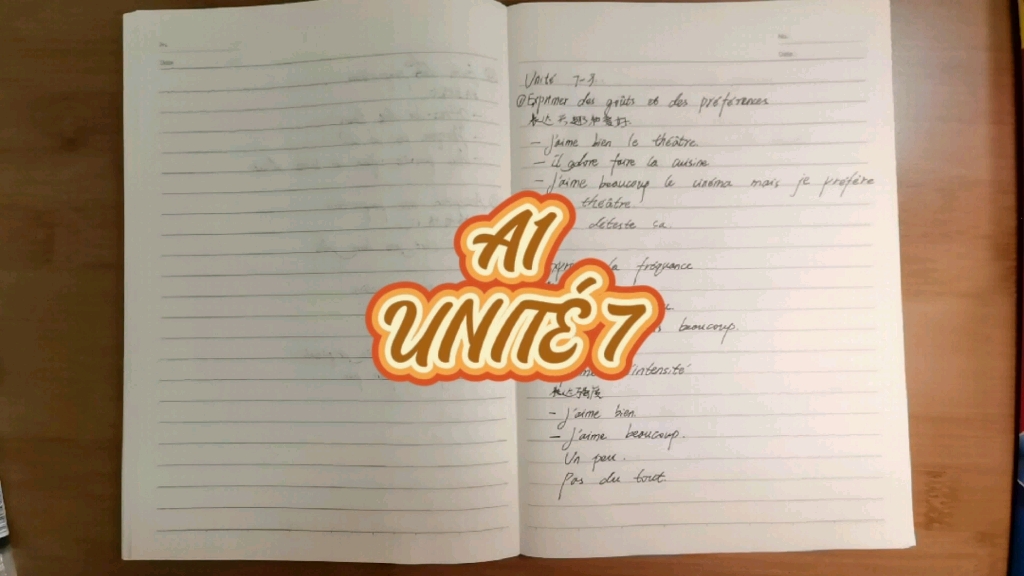 Unité 7-8
Exprimer des goûts et des préférences
表达兴趣和喜好
- J'aime bien le théâtre.
- il adore faire la cuisine
- J'aime beaucoup le cinéma mais je préfère
théâtre.
déteste ça.
la fréquence
beaucoup.
l'intensité
表达强度
- J'aime bien
- J'aime beaucoup.
Un peu.
Pas du tout.
A1
UNITÉ 7